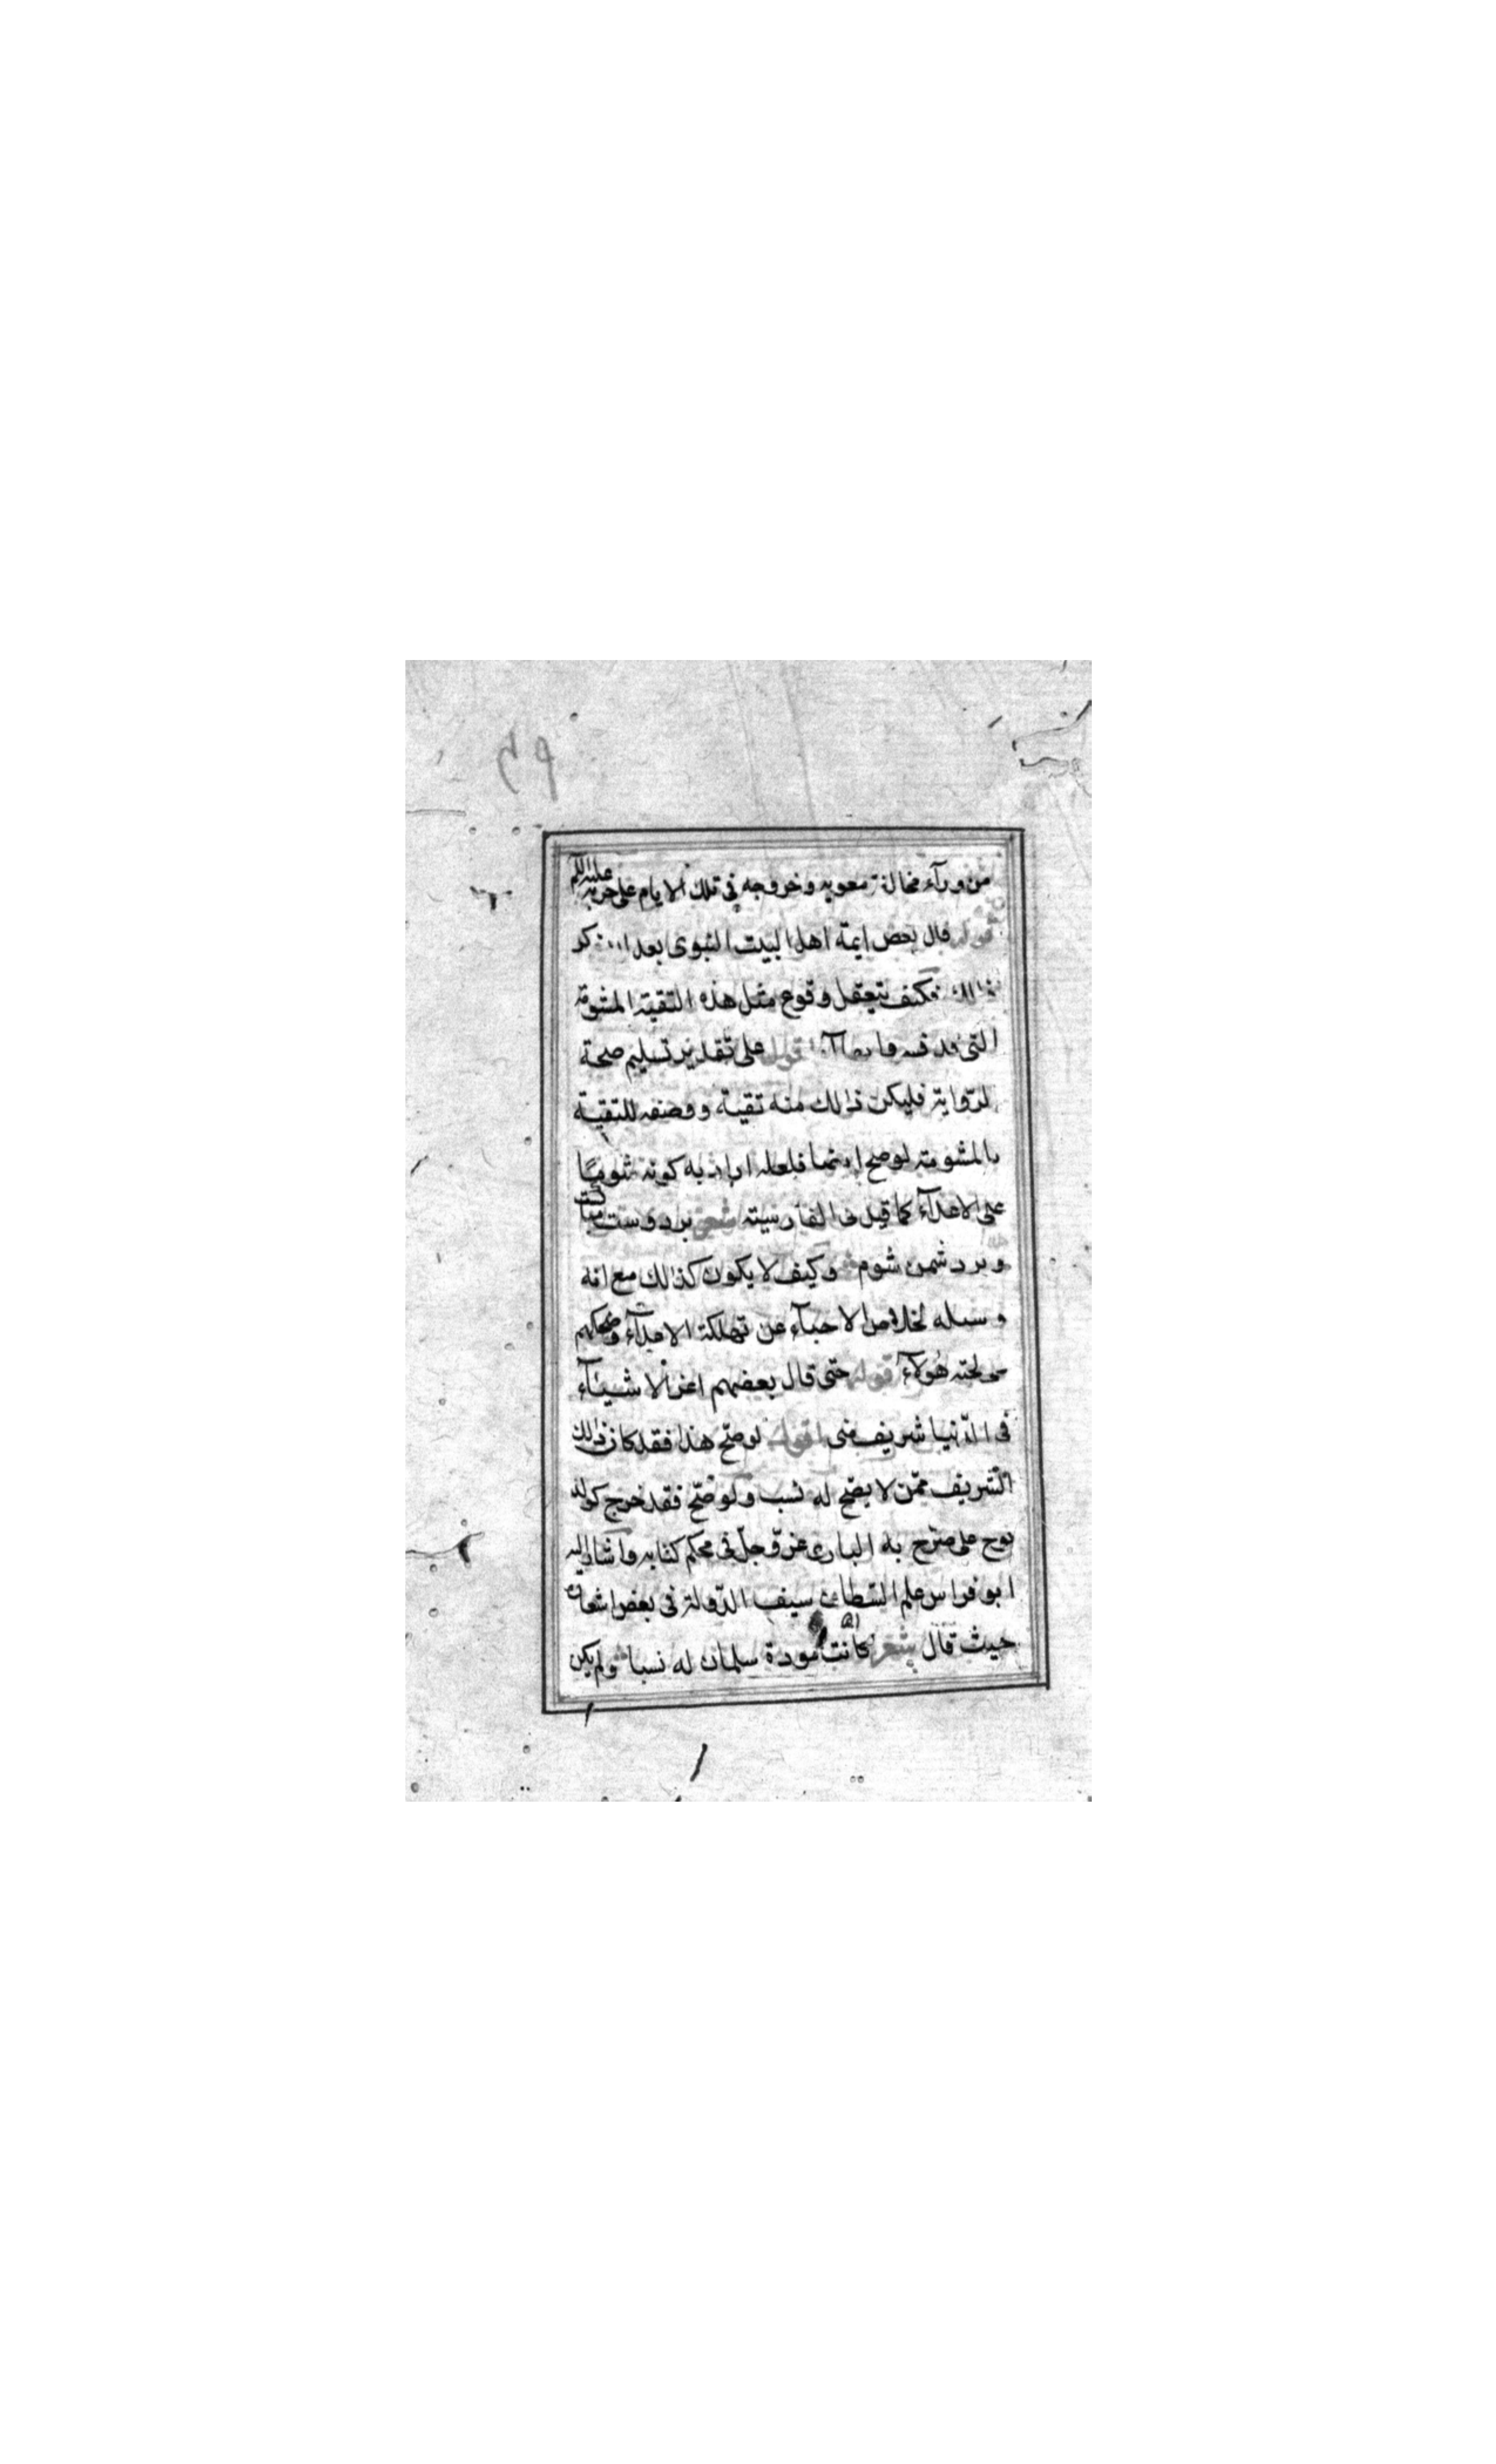 من ورآء مخالفة معوية وخروجه فى تلك الايام على حربه عليه السلم
قوله قال بعض ايمة اهل البيت النبوى بعد ان ذكر
ذالك فكيف يتعقل وقوع مثل هذه التقية المشومة
التى اقول على تقدير تسليم صحة
الرّواية فليكن ذالك منه تقية ووصفه للتقية
بالمشومة لوصح ايضا فلعله اراد به كونه شومًا
على الاعدآء كما قيل فى الفارسية شعر بر دوست مباركست
و بر دشمن شوم وكيف لا يكون كذالك مع انه
وسيله لخلاص الاحبآء عن تهلكة الاعدآء وضحكهم
على لحية هولآء قوله حتى قال بعضهم اعز الاشيآء
فى الدّنيا شريف سنى اقول لو صحّ هذا فقد كان ذالك
الشريف ممّن لا يصّح له نسب ولو صّح فقد خرج كولد
نوح على ما صّرح به البارى عزّ وجلّ فى محكم كتابه واشار اليه
ابو فراس علم السّلطان سيف الدّولة فى بعض اشعاره
حيث قال شعر كانت مودة سلمان له نسبا ولم يكن